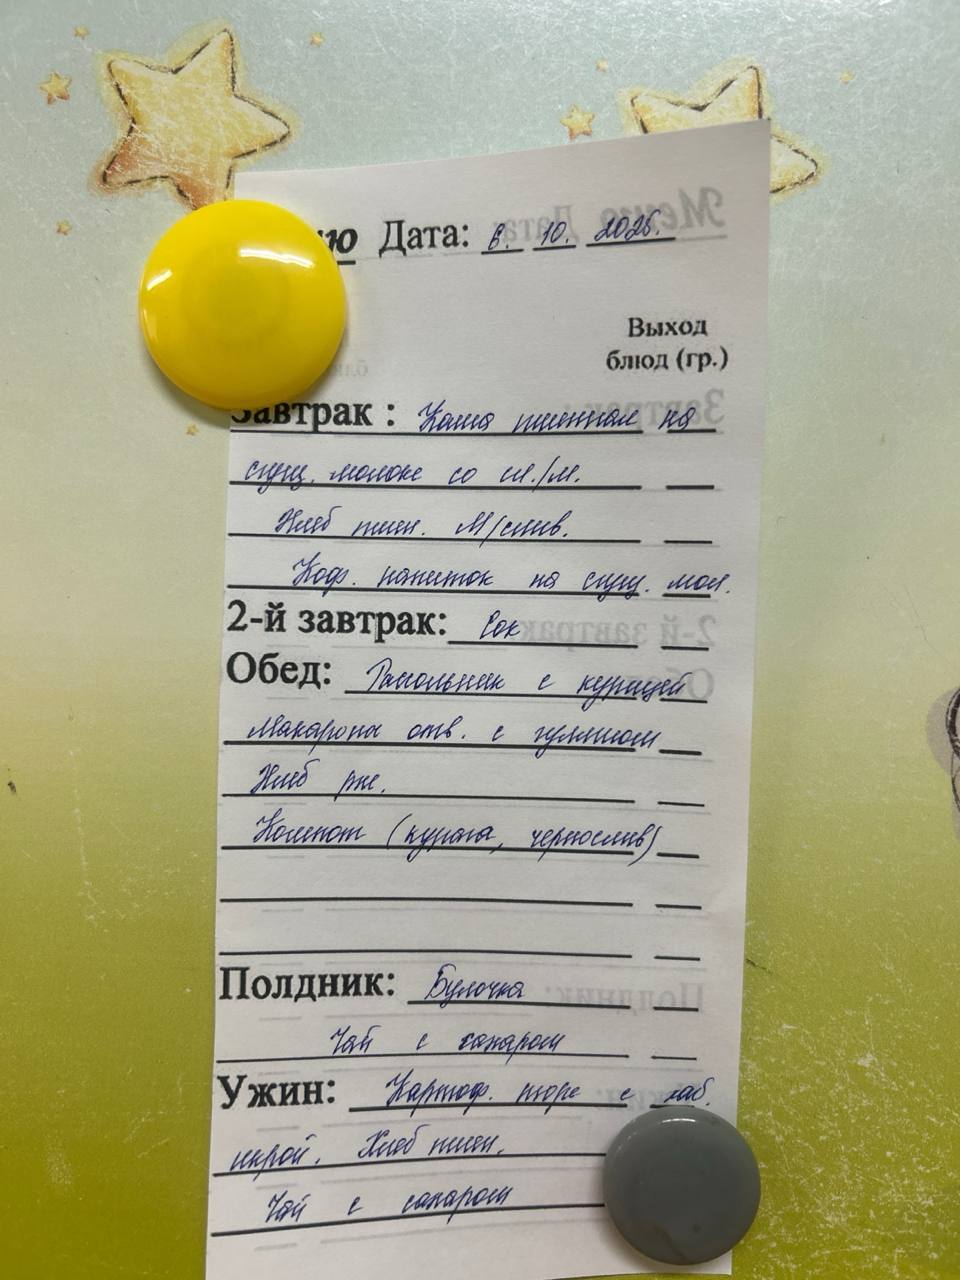 ню Дата: 6. 10. 2025.
Выход
блюд (гр.)
Завтрак : Каша пшенная на
сгущ. молоке со сл./м.
Хлеб пшен. М/слив.
Коф. напиток на сгущ. мол.
2-й завтрак: Сок
Обед: Рассольник с курицей
Макароны отв. с гуляшом
Хлеб рж.
Компот (курага, чернослив)
Полдник: Булочка
Чай с сахаром
Ужин: Картоф. пюре с каб.
икрой. Хлеб пшен.
Чай с сахаром